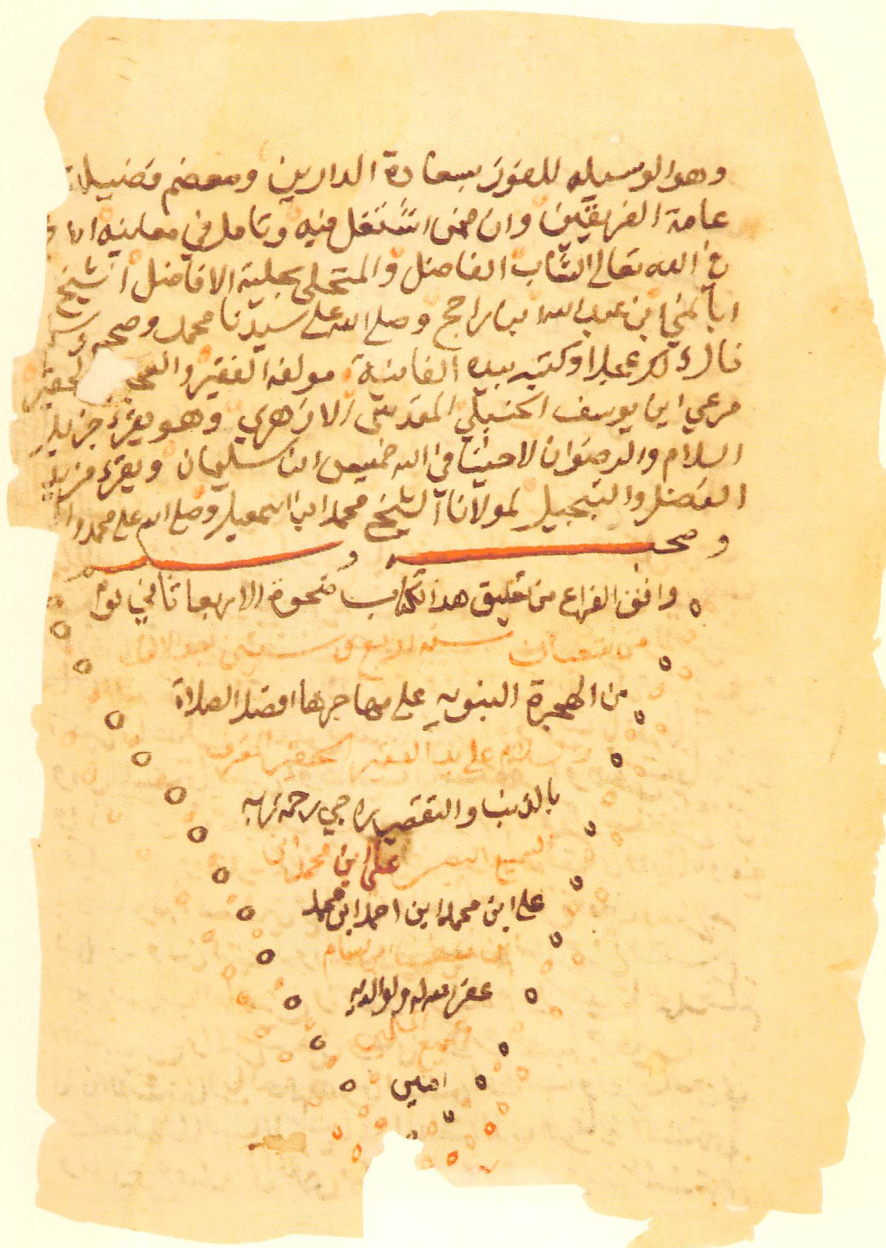 وهو الوسيله للفوز بسعادة الدارين ومعضم فضيلة
عامة الفريقين وان ممن اشتغل فيه وتامل في معانيه
في الله تعالى الشاب الفاضل والمتحلى بحلية الافاضل الشيخ
ابا نمي ابن عبد الله ابن راجح وصلى الله على سيدنا محمد وصحبه
قال ذلك عجلا وكتبه بيده الفانية مولفه الفقير الحقير
مرعي ابن يوسف الحنبلي المقدسي الازهري وهو يقرء جزيل
السلام والرضوان لاخينا في الله خميس ابن سليمان ويقرء مزيد
الفضل والتبجيل لمولانا الشيخ محمد ابن اسمعيل وصلى الله على محمد
وصحبه وسلم
وافق الفراغ من تعليق هذا الكتاب ضحوة الاربعا ثاني يوم
من شعبان سنه اربع وستين بعد الالف
من الهجرة النبويه على مهاجرها افضل الصلاة
والسلام على يد الفقير الحقير المعترف
بالذنب والتقصير راجي رحمة ربه
السميع البصير علي ابن محمد ابن
علي ابن محمد ابن احمد ابن محمد
ابن
غفر الله له ولوالديه
امين